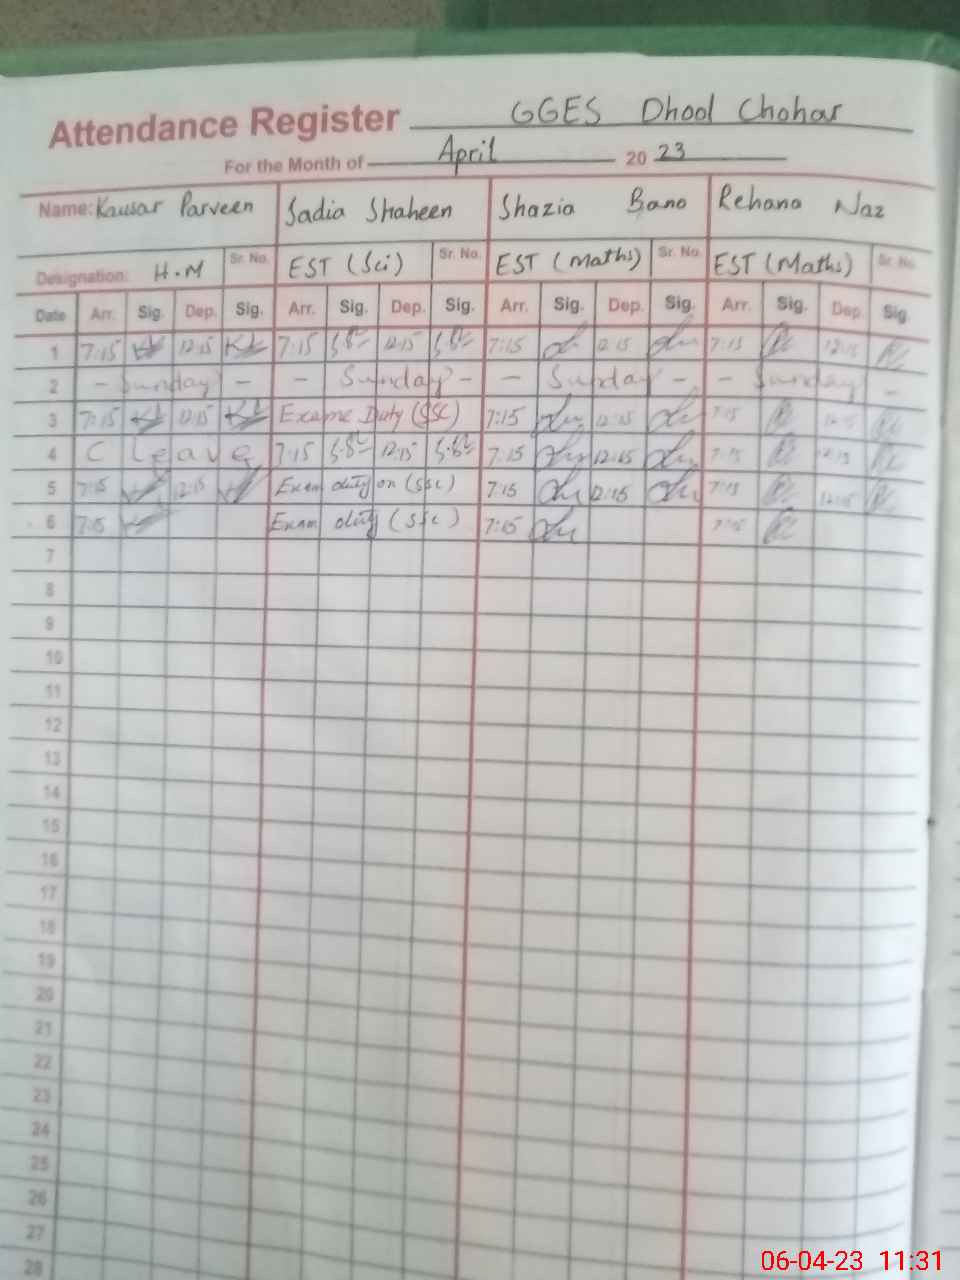 Attendance Register GGES Dhool Chohar
For the Month of April 20 23
Name: Kausar Parveen Sadia Shaheen Shazia Bano Rehana Naz
Designation: H.M Sr. No. EST (Sci) Sr. No. EST (Maths) Sr. No. EST (Maths) Sr. No.
Date Arr. Sig. Dep. Sig. Arr. Sig. Dep. Sig. Arr. Sig. Dep. Sig. Arr. Sig. Dep. Sig.
1 7:15 12:15 7:15 12:15 7:15 12:15 7:15 12:15
2 - Sunday - - Sunday - - Sunday - - Sunday -
3 7:15 12:15 Exame Duty (SSC) 7:15 12:15 7:15 12:15
4 C leave 7:15 12:15 7:15 12:15 7:15 12:15
5 7:15 12:15 Exam duty on (SSC) 7:15 12:15 7:15 12:15
6 7:15 Exam duty (SSC) 7:15 7:15
7
8
9
10
11
12
13
14
15
16
17
18
19
20
21
22
23
24
25
26
27
28
06-04-23 11:31